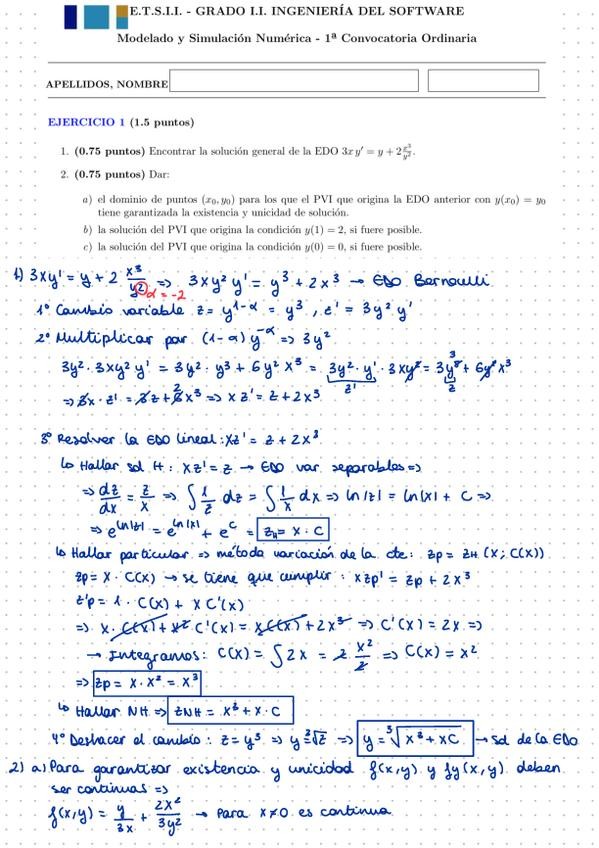 E.T.S.I.I. - GRADO I.I. INGENIERÍA DEL SOFTWARE
Modelado y Simulación Numérica - 1ª Convocatoria Ordinaria
APELLIDOS, NOMBRE
EJERCICIO 1 (1.5 puntos)
1. (0.75 puntos) Encontrar la solución general de la EDO 3x y' = y + 2 x³/y².
2. (0.75 puntos) Dar:
a) el dominio de puntos (x₀, y₀) para los que el PVI que origina la EDO anterior con y(x₀) = y₀
tiene garantizada la existencia y unicidad de solución.
b) la solución del PVI que origina la condición y(1) = 2, si fuere posible.
c) la solución del PVI que origina la condición y(0) = 0, si fuere posible.
1) 3xy' = y + 2 x³/y² => 3xy² y' = y³ + 2x³ → EDO Bernoulli
α = -2
1º Cambio variable z = y^(1-α) = y³, z' = 3y² y'
2º Multiplicar por (1-α) y^(-α) => 3y²
3y² · 3xy² y' = 3y² · y³ + 6y² x³ = 3y² · y' · 3xy² = 3y³ + 6y² x³
z' z
=> 3x · z' = 3z + 6x³ => x z' = z + 2x³
3º Resolver la EDO lineal: xz' = z + 2x³
↳ Hallar sol H: xz' = z → EDO var. separables =>
=> dz/dx = z/x => ∫ 1/z dz = ∫ 1/x dx => ln|z| = ln|x| + C =>
=> e^(ln|z|) = e^(ln|x|) + e^c = z_H = x · C
↳ Hallar particular => método variación de la cte: zp = z_H (x; C(x))
zp = x · C(x) → se tiene que cumplir: xzp' = zp + 2x³
z'p = 1 · C(x) + x C'(x)
=> x · C(x) + x² C'(x) = x C(x) + 2x³ => C'(x) = 2x =>
→ Integramos: C(x) = ∫ 2x = 2 x²/2 => C(x) = x²
=> zp = x · x² = x³
↳ Hallar NH => z_NH = x³ + x · C
4º Deshacer el cambio: z = y³ => y = ³√z => y = ³√(x³ + xC) → sol de la EDO
2) a) Para garantizar existencia y unicidad f(x,y) y fy(x,y) deben
ser continuas =>
f(x,y) = y/3x + 2x²/3y² → Para x≠0 es continua